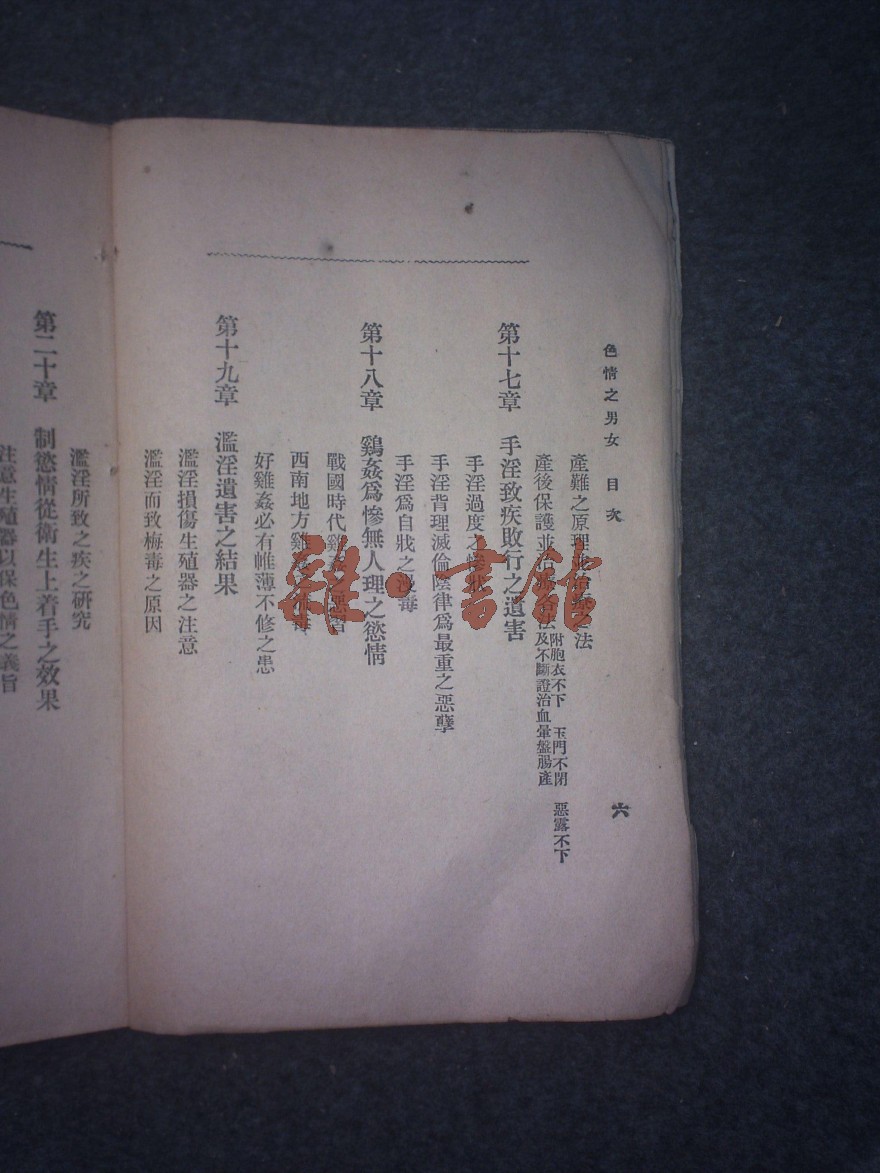 色情之男女 目次
六
產難之原理並治療之法
產後保護並治療各法
附胞衣不下 玉門不閉 惡露不下
及不斷證治血暈盤腸產
第十七章 手淫致疾敗行之遺害
手淫過度之慘狀
手淫背理滅倫陰律爲最重之惡孽
手淫爲自戕之漫毒
第十八章 鷄姦爲慘無人理之慾情
戰國時代雞姦之惡習
西南地方雞姦之
好雞姦必有帷薄不修之患
第十九章 濫淫遺害之結果
濫淫損傷生殖器之注意
濫淫而致梅毒之原因
濫淫所致之疾之研究
第二十章 制慾情從衛生上着手之效果
注意生殖器以保色情之義旨
雜·書館